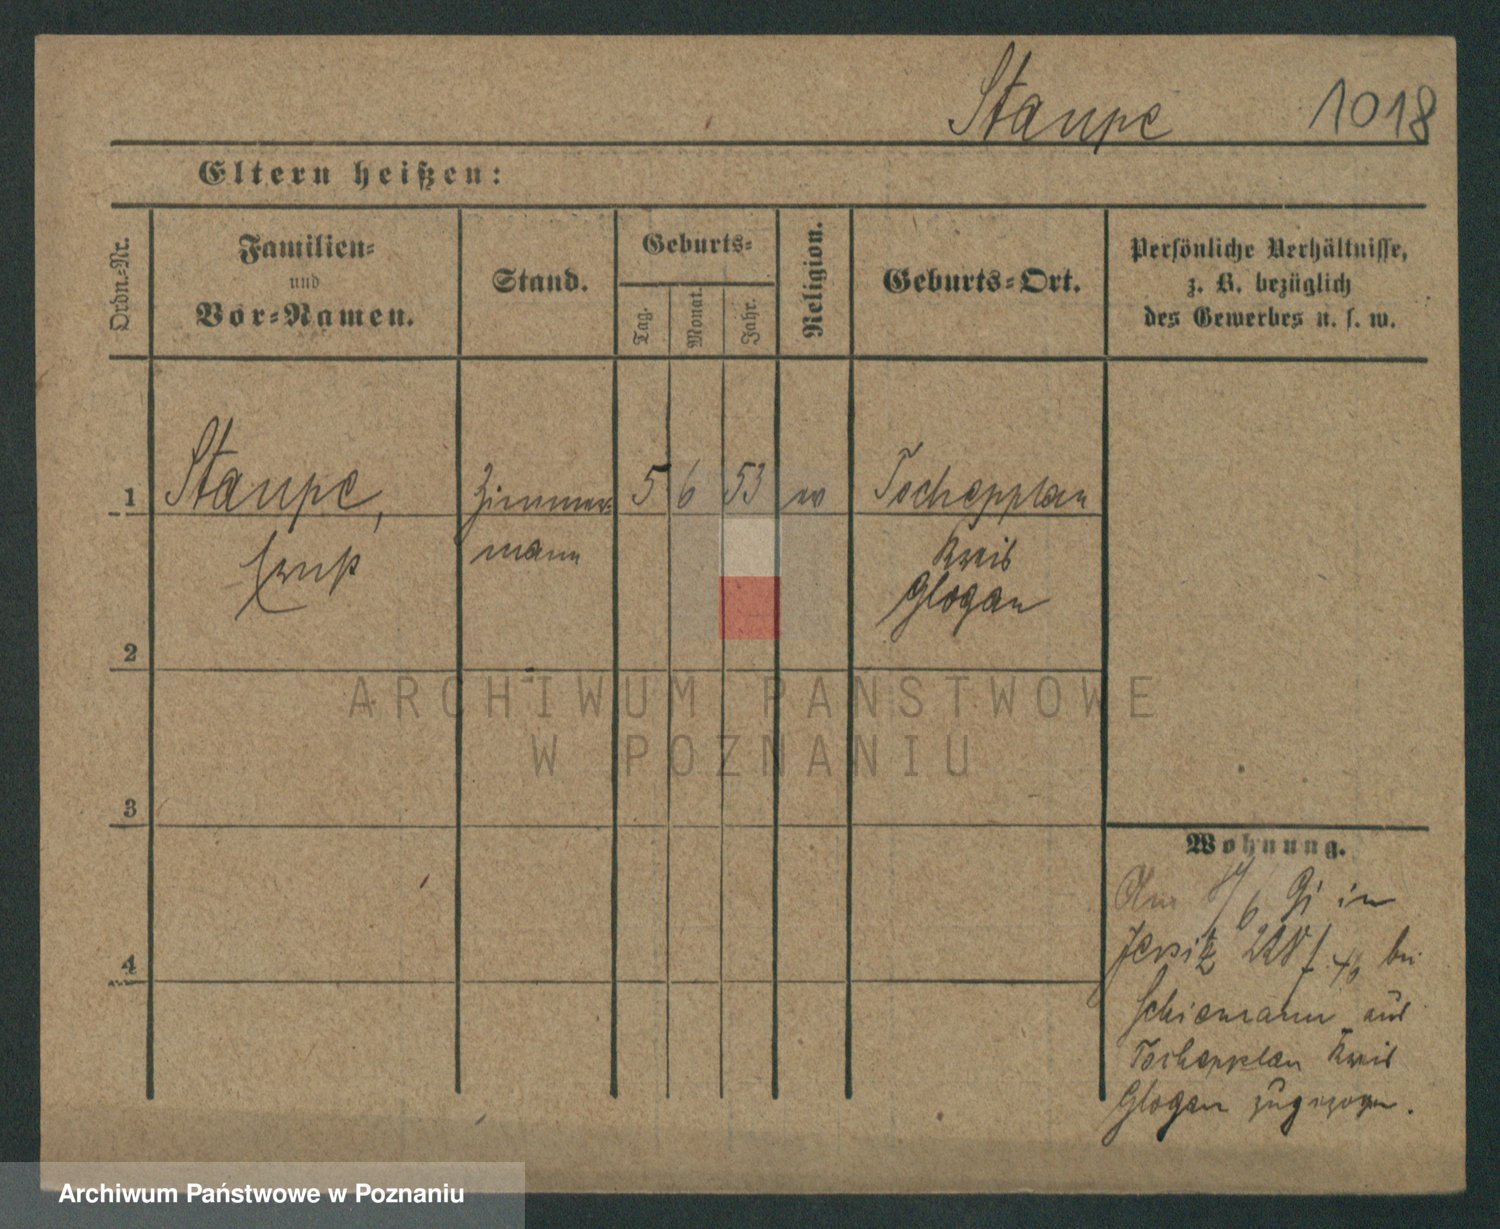 Staupe 1018
Eltern heißen:
Ordn.-Nr.
Familien-
und
Vor-Namen.
Stand.
Geburts-
Tag.
Monat.
Jahr.
Religion.
Geburts-Ort.
Persönliche Verhältnisse,
z. B. bezüglich
des Gewerbes u. s. w.
1 Staupe, Zimmer- 5 6 53 ev Tschepplau
Ernst mann Kreis
Glogau
2
3
4
Wohnung.
Am /6 91 in
Jersitz bei
Schiemann aus
Tschepplau Kreis
Glogau zugezogen.
ARCHIWUM PAŃSTWOWE
W POZNANIU
Archiwum Państwowe w Poznaniu